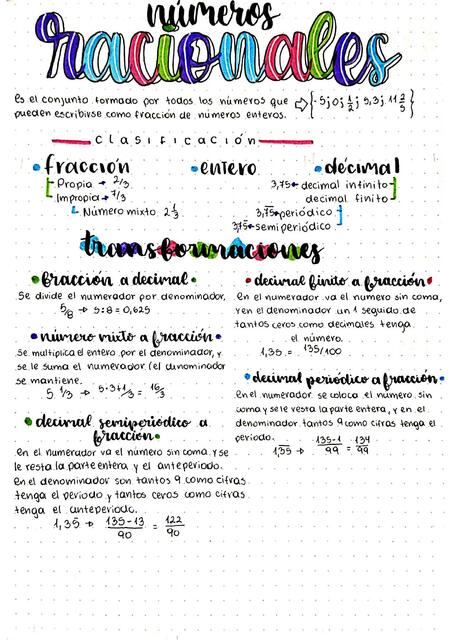 números
racionales
Es el conjunto formado por todos los números que
pueden escribirse como fracción de números enteros.
⇨ {-5; 0; 1/2; 5,3; 11 2/5}
Clasificación
• fracción
Propia → 2/3
Impropia → 7/3
↳ Número mixto 2 1/3
• entero
• décimal
3,75→ decimal infinito
decimal finito
3,75→periódico
3,75→semiperiódico
transformaciones
• fracción a decimal •
Se divide el numerador por denominador.
5/8 → 5:8 = 0,625
• número mixto a fracción •
Se multiplica el entero por el denominador, y
se le suma el numerador (el denominador
se mantiene.
5 1/3 → 5·3+1/3 = 16/3
• decimal semiperiódico a
fracción •
En el numerador va el número sin coma y se
le resta la parte entera y el anteperiodo.
En el denominador son tantos 9 como cifras
tenga el periodo y tantos ceros como cifras
tenga el anteperiodo.
1,35̅ → 135-13/90 = 122/90
• decimal finito a fracción •
En el numerador va el número sin coma,
y en el denominador un 1 seguido de
tantos ceros como decimales tenga
el número.
1,35 = 135/100
• decimal periódico a fracción •
En el numerador se coloca el número sin
coma y se le resta la parte entera, y en el
denominador tantos 9 como cifras tenga el
periodo.
1,3̅5̅ → 135-1/99 = 134/99